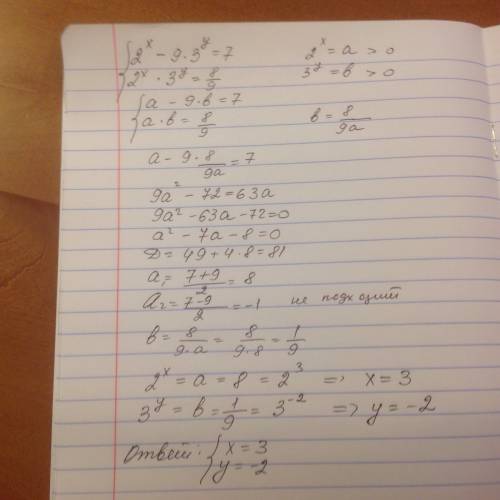 { 2^x − 9·3^y = 7      2^x = a > 0
{ 2^x · 3^y = 8/9      3^y = в > 0
{ a − 9·в = 7
{ a·в = 8/9      в = 8/9a
a − 9·8/9a = 7
9a² − 72 = 63a
9a² − 63a − 72 = 0
a² − 7a − 8 = 0
D = 49 + 4·8 = 81
a₁ = (7+9)/2 = 8
a₂ = (7−9)/2 = −1 не подходит
в = 8/9·a = 8/9·8 = 1/9
2^x = a = 8 = 2³ ⇒ x = 3
3^y = в = 1/9 = 3^−2 ⇒ y = −2
Ответ: { x = 3
{ y = −2